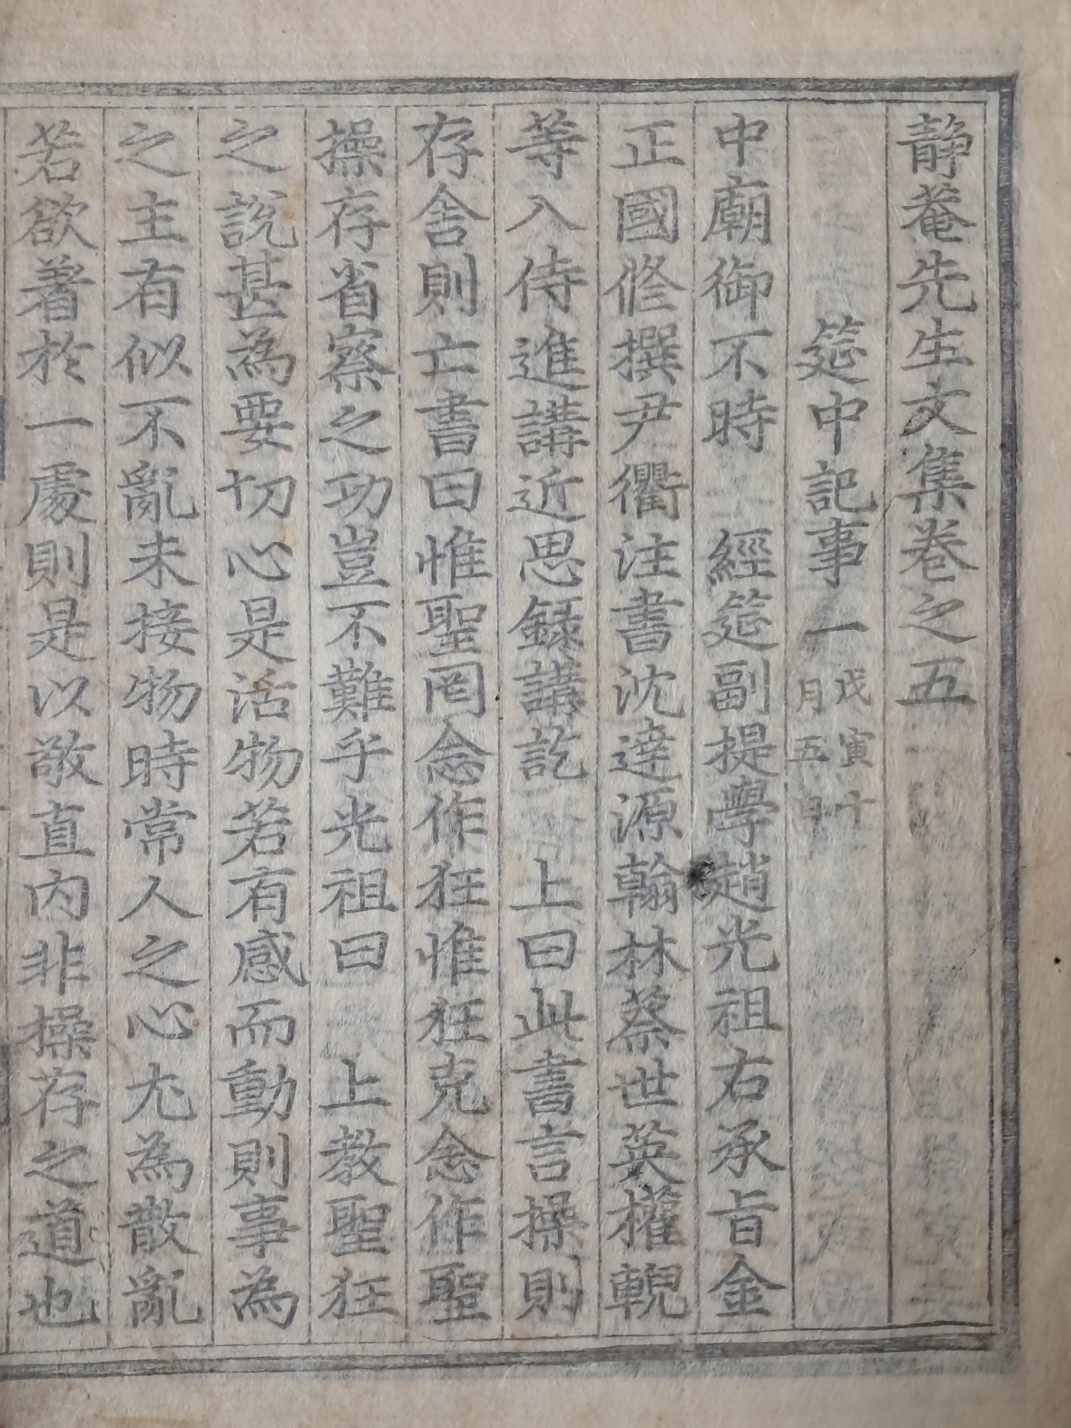 靜菴先生文集卷之五
筵中記事一 戊寅十月五日
中廟御不時 經筵副提學趙光祖右承旨金
正國修撰尹衢注書沈達源翰林蔡世英權輗
等入侍進講近思錄講訖 上曰此書言操則
存舍則亡書曰惟聖罔念作狂惟狂克念作聖
操存省察之功豈不難乎光祖曰 上教聖狂
之說甚為要切心是活物若有感而動則事為
之主有似不亂未接物時常人之心尤為散亂
若欲著於一處則是以敬直內非操存之道也